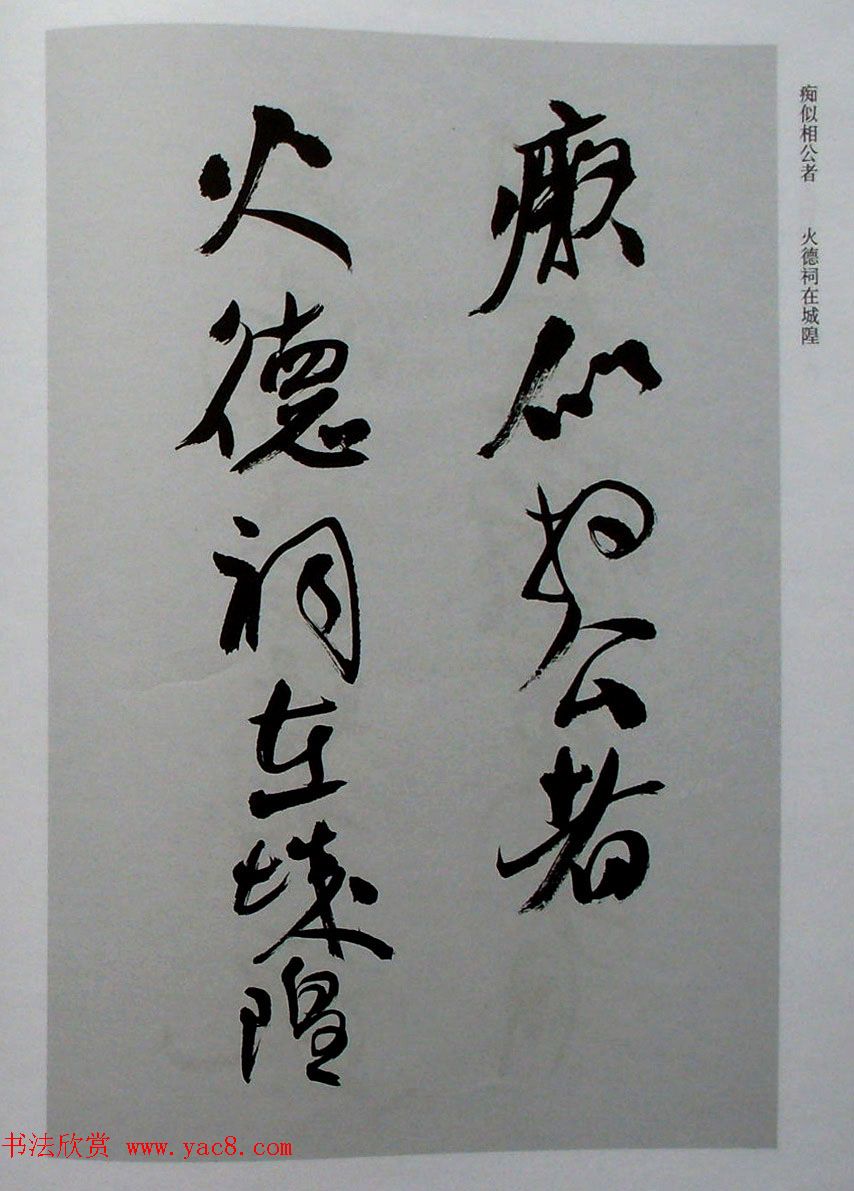 痴似相公者　　火德祠在城隍
痴似相公者
火德祠在城隍
书法欣赏 www.yac8.com